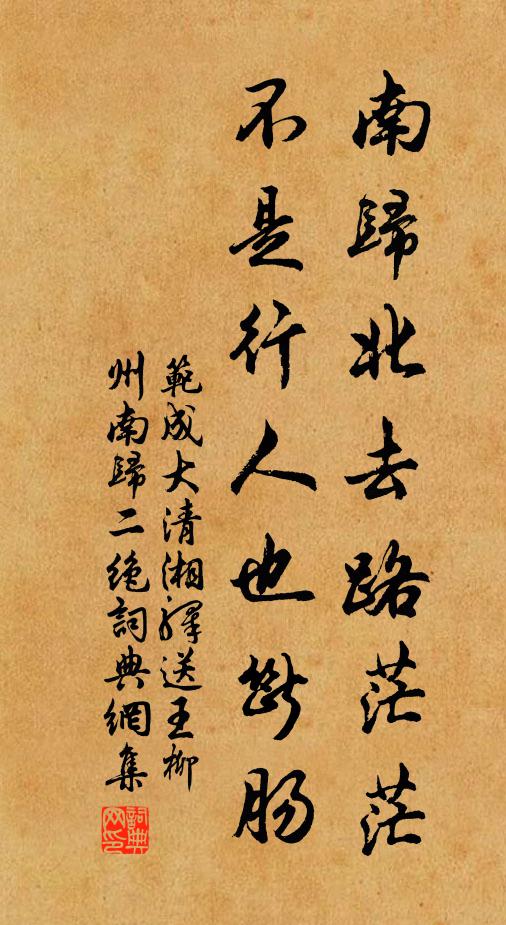 南歸北去路茫茫
不是行人也斷腸
範成大清湘驛送王柳
州南歸二絶詞典網集
詞典
网印